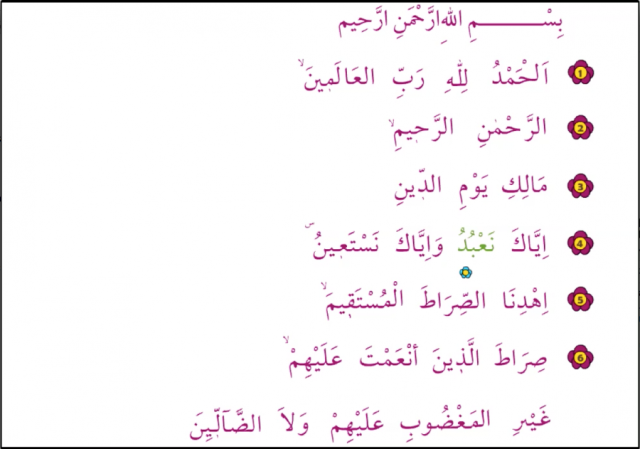 بِسْــــــــمِ اللهِ ارَّحْمَنِ ارَّحِيم
1 اَلْحَمْدُ لِلّٰهِ رَبِّ العَالَمِينَۙ
2 الرَّحْمٰنِ الرَّحِيمِۙ
3 مَالِكِ يَوْمِ الدِّينِ
4 اِيَّاكَ نَعْبُدُ وَاِيَّاكَ نَسْتَعِينُۜ
5 اِهْدِنَا الصِّرَاطَ الْمُسْتَقِيمَۙ
6 صِرَاطَ الَّذِينَ أنْعَمْتَ عَلَيْهِمْۙ
غَيْرِ المَغْضُوبِ عَلَيْهِمْ وَلاَ الضَّآلِّينَ